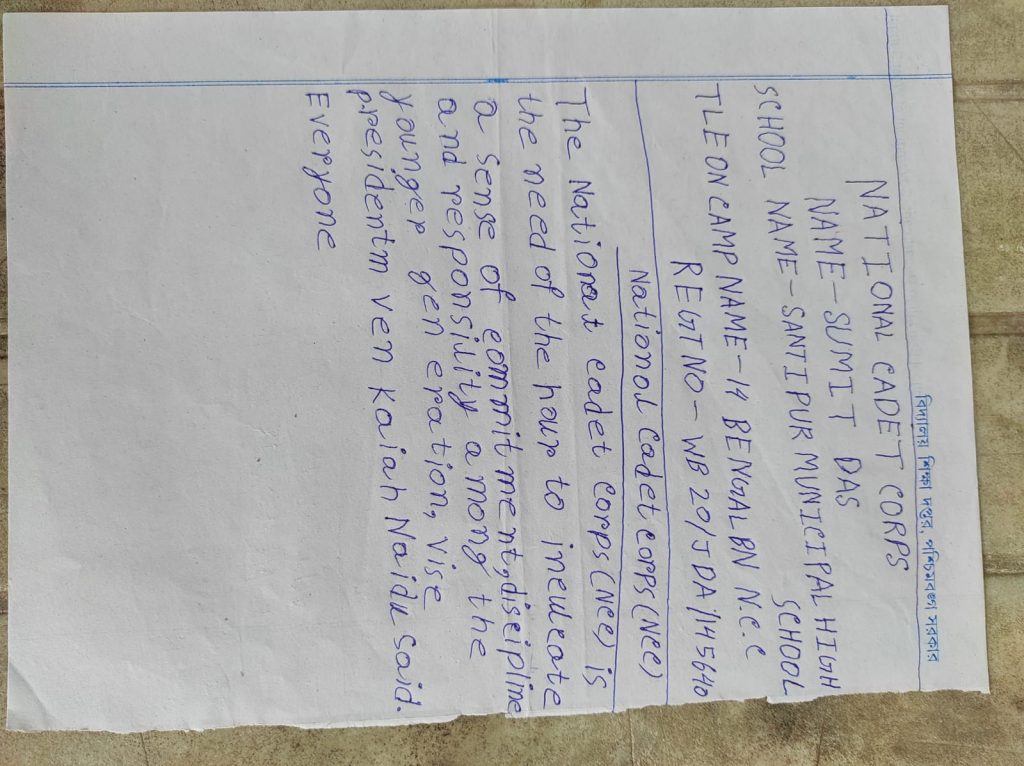 বিদ্যালয় শিক্ষা দপ্তর, পশ্চিমবঙ্গ সরকার
NATIONAL CADET CORPS
NAME-SUMIT DAS
SCHOOL NAME-SANTIPUR MUNICIPAL HIGH
SCHOOL
TLEON CAMP NAME-14 BENGAL BN N.C.C
REGT NO- WB 20/JDA/145640
National Cadet Corps (NCC)
The National cadet Corps (NCC) is
the need of the hour to inculcate
a sense of commitment, discipline
and responsility among the
younger generation, vise
presidentm ven Kaiah Naidu said.
Everyone